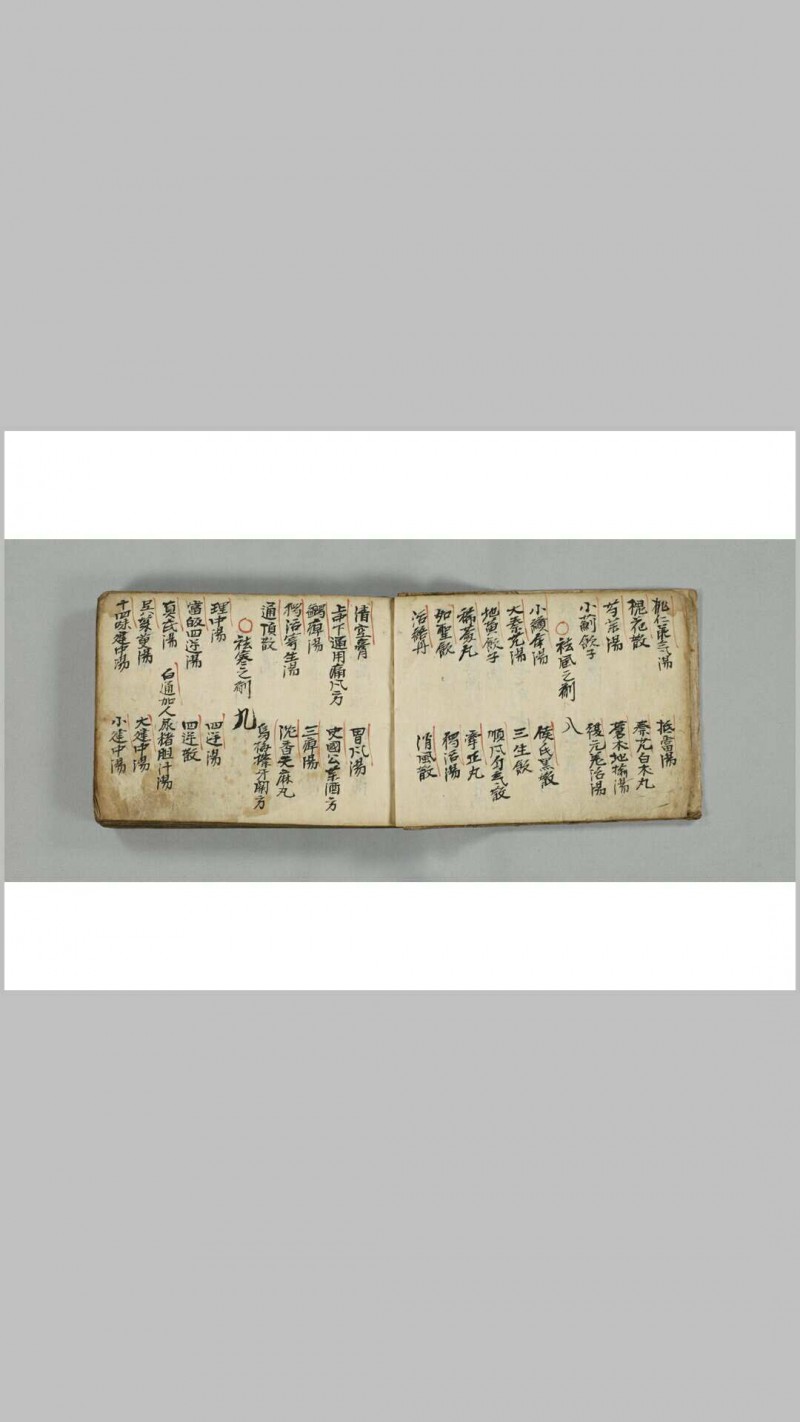 桃仁承氣湯　抵當湯
槐花散　秦艽白朮丸
芍藥湯　蒼朮地榆湯
小薊飲子　復元羌活湯
○祛風之劑　八
小續命湯　侯氏黑散
大秦艽湯　三生飲
地黃飲子　順風勻氣散
稀薟丸　牽正丸
如聖飲　獨活湯
活絡丹　消風散
清空膏　胃風湯
上中下通用痛風方　史國公藥酒方
蠲痺湯　三痺湯
獨活寄生湯　沈香天麻丸
通頂散　烏梅擦牙關方
○祛寒之劑　九
理中湯　四逆湯
當歸四逆湯　四逆散
真武湯　白通加人尿猪胆汁湯
吳茱萸湯　大建中湯
十四味建中湯　小建中湯